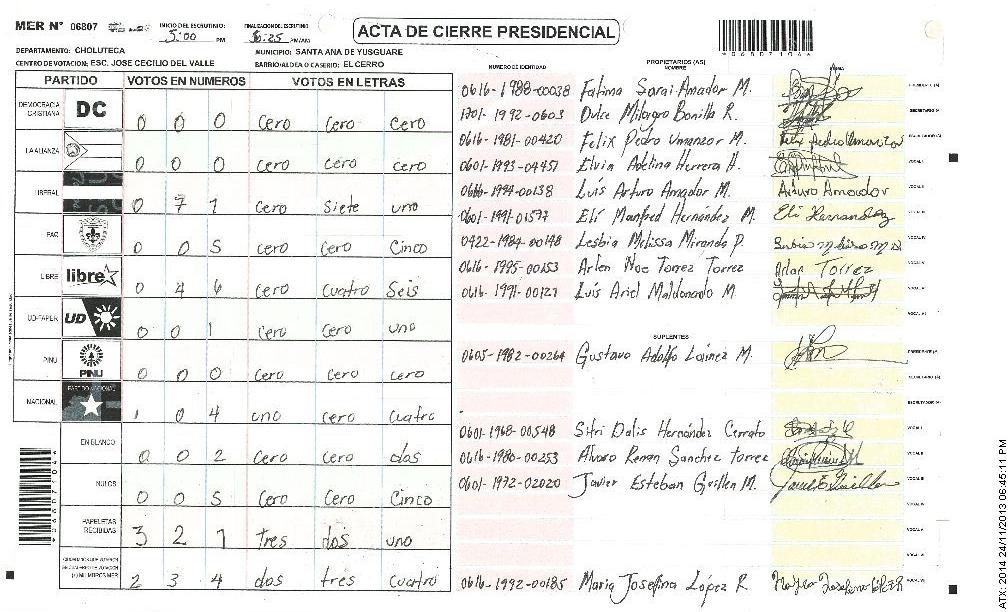 MER N° 06807
INICIO DEL ESCRUTINIO: 5:00 PM
FINALIZACION DEL ESCRUTINIO 6:25 PM/AM
ACTA DE CIERRE PRESIDENCIAL
*06807104*
DEPARTAMENTO: CHOLUTECA
MUNICIPIO: SANTA ANA DE YUSGUARE
CENTRO DE VOTACION: ESC. JOSE CECILIO DEL VALLE
BARRIO/ALDEA O CASERIO: EL CERRO
PARTIDO VOTOS EN NUMEROS VOTOS EN LETRAS
DEMOCRACIA CRISTIANA DC 0 0 0 cero cero cero
LA ALIANZA 0 0 0 cero cero cero
LIBERAL 0 7 1 cero siete uno
PAC 0 0 5 cero cero Cinco
LIBRE libre 0 4 6 cero cuatro Seis
UD-FAPER UD 0 0 1 cero cero uno
PINU PINU 0 0 0 cero cero cero
NACIONAL PARTIDO NACIONAL 1 0 4 uno cero cuatro
EN BLANCO 0 0 2 cero cero dos
NULOS 0 0 5 cero cero Cinco
PAPELETAS RECIBIDAS 3 2 1 tres dos uno
(+) MIEMBROS MER 2 3 4 dos tres cuatro
*06807104*
NUMERO DE IDENTIDAD
PROPIETARIOS (AS)
NOMBRE
FIRMA
0616-1988-00038 Fatima Sarai Amador M.
1701-1992-0603 Dulce Milagro Bonilla R.
0616-1981-00420 Felix Pedro Umanzor M.
0601-1993-04457 Elvin Adelina Herrera H. VOCAL I
0616-1994-00138 Luis Arturo Amador M. Arturo Amador VOCAL II
0601-1991-01577 Elí Manfred Hernández M. Eli Hernandez VOCAL III
0422-1984-00148 Lesbia Melissa Miranda P. VOCAL IV
0616-1995-00153 Arlen Noe Torrez Torrez Arlen Torrez VOCAL V
0616-1991-00127 Luis Ariel Maldonado M VOCAL VI
VOCAL VII
SUPLENTES
0605-1982-00264 Gustavo Adolfo Lainez M. PRESIDENTE (A)
SECRETARIO (A)
ESCRUTADOR (A)
0601-1968-00548 Sitri Dalis Hernández Cerrato VOCAL I
0616-1980-00253 Alvaro Renan Sanchez Torrez VOCAL II
0601-1972-02020 Javier Esteban Guillen M. VOCAL III
VOCAL IV
VOCAL V
VOCAL VI
0616-1992-00185 Maria Josefina López R. VOCAL VII
ATX-2014 24/11/2013 06:45:11 PM